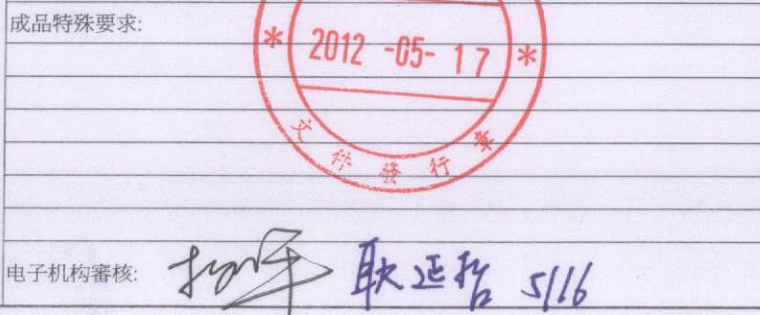 成品特殊要求:
* 2012 -05- 17 *
文件發行章
电子机构審核: 耿延 5/16